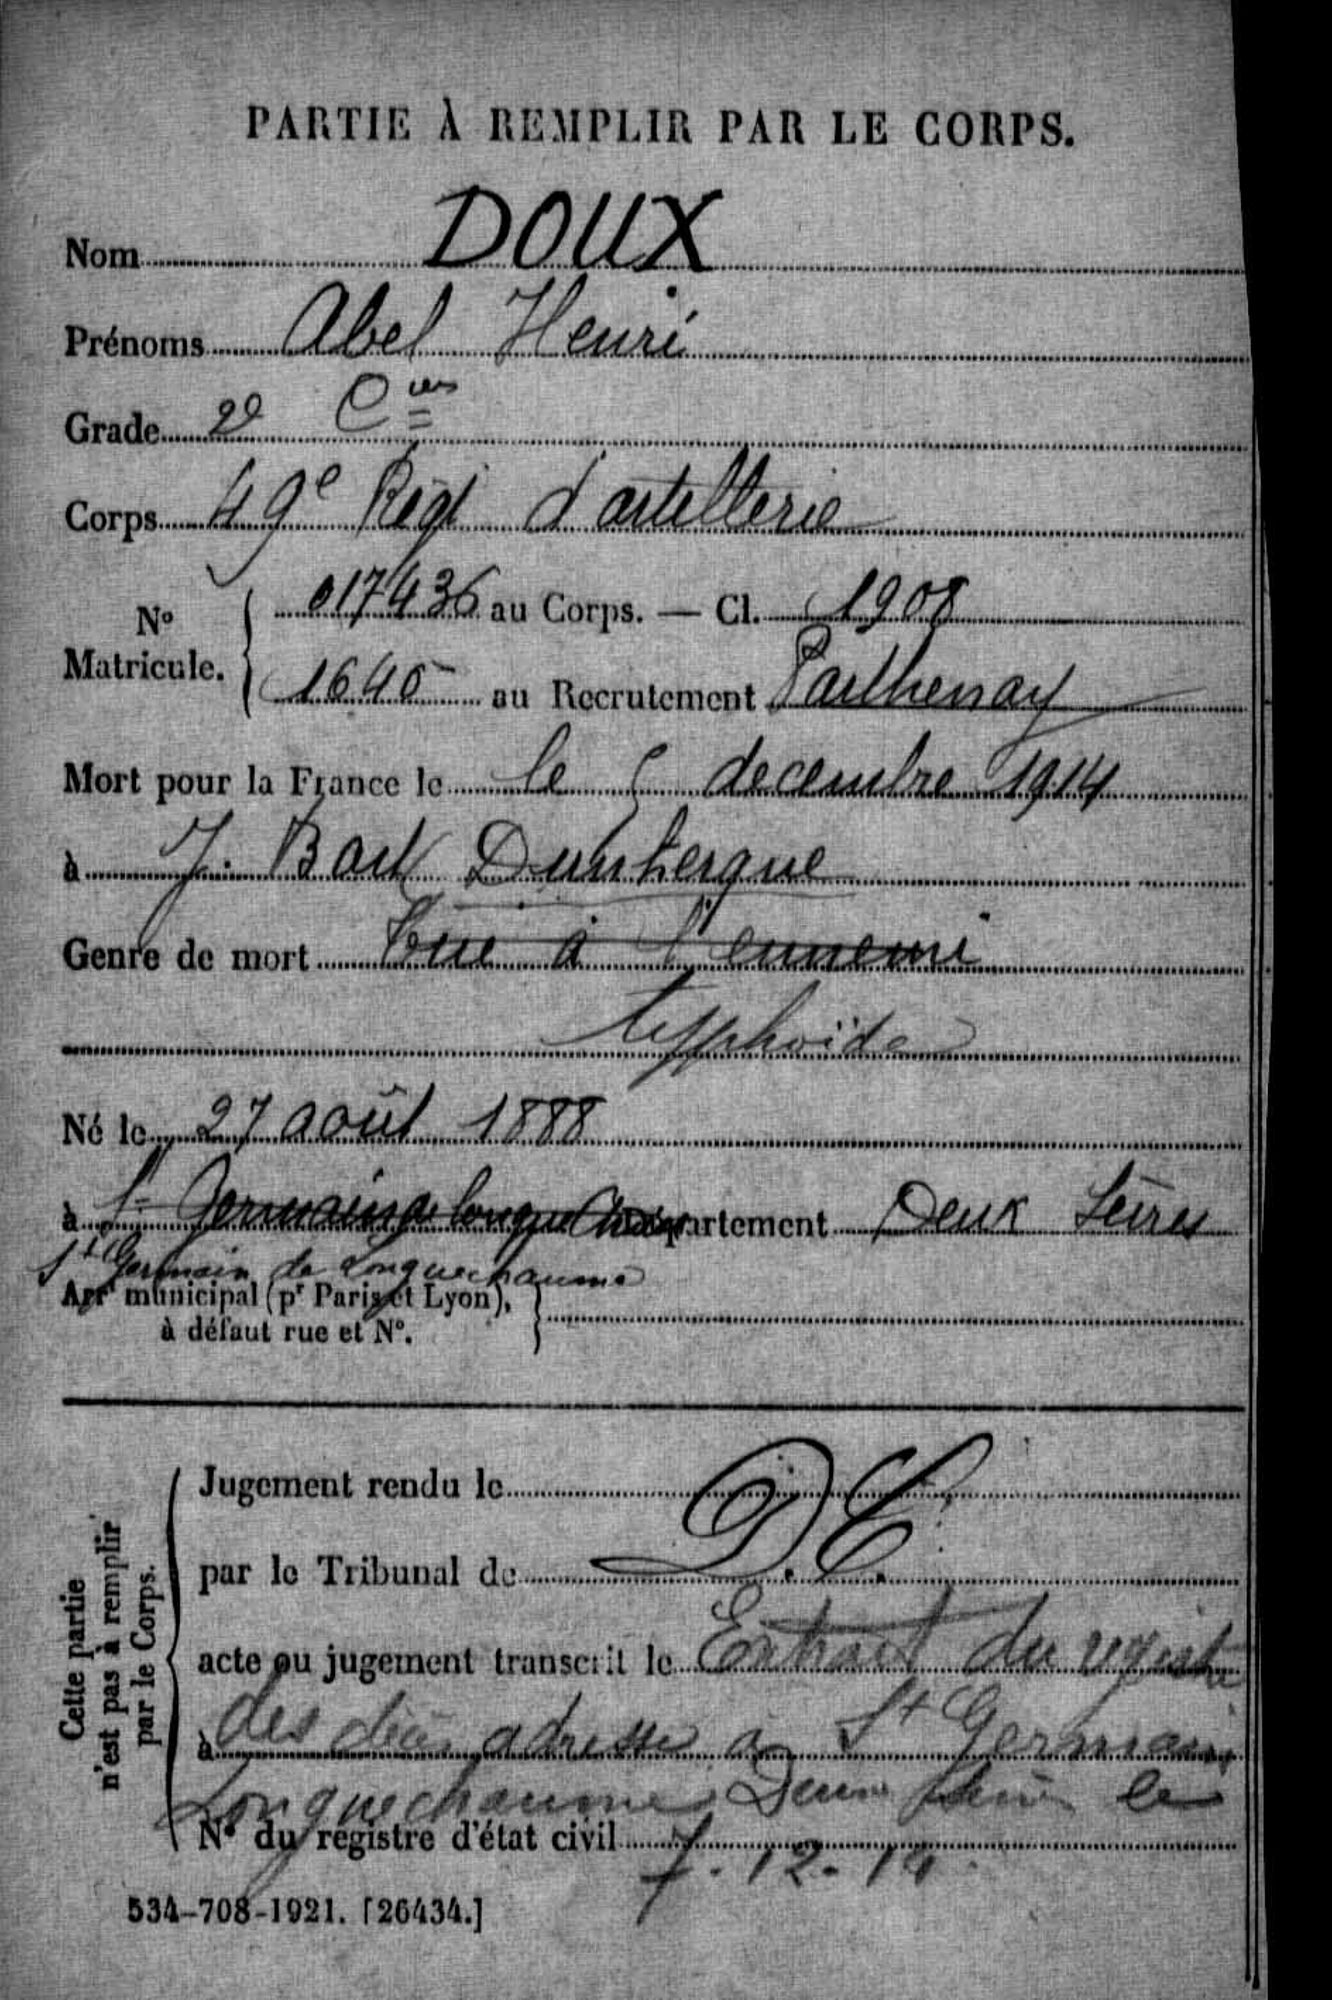 PARTIE À REMPLIR PAR LE CORPS.
Nom DOUX
Prénoms Abel Henri
Grade 2e Cers
Corps 49e Régt d'artillerie
No Matricule. 017436 au Corps. — Cl. 1908
1645 au Recrutement Parthenay
Mort pour la France le le 5 decembre 1914
à J. Bart Dunkerque
Genre de mort Tué à l'ennemi
typhoïde
Né le 27 août 1888
à St Germain de Longue Chaume Département Deux Sèvres
St Germain de Longuechaume
Arrt municipal (pr Paris et Lyon),
à défaut rue et No.
Cette partie
n'est pas à remplir
par le Corps.
Jugement rendu le
par le Tribunal de D.C.
acte ou jugement transcrit le Extrait du registre
à des décès adressé à St Germain
Longuechaume Deux Sèvres le
No du registre d'état civil 7.12.14
534-708-1921. [26434.]